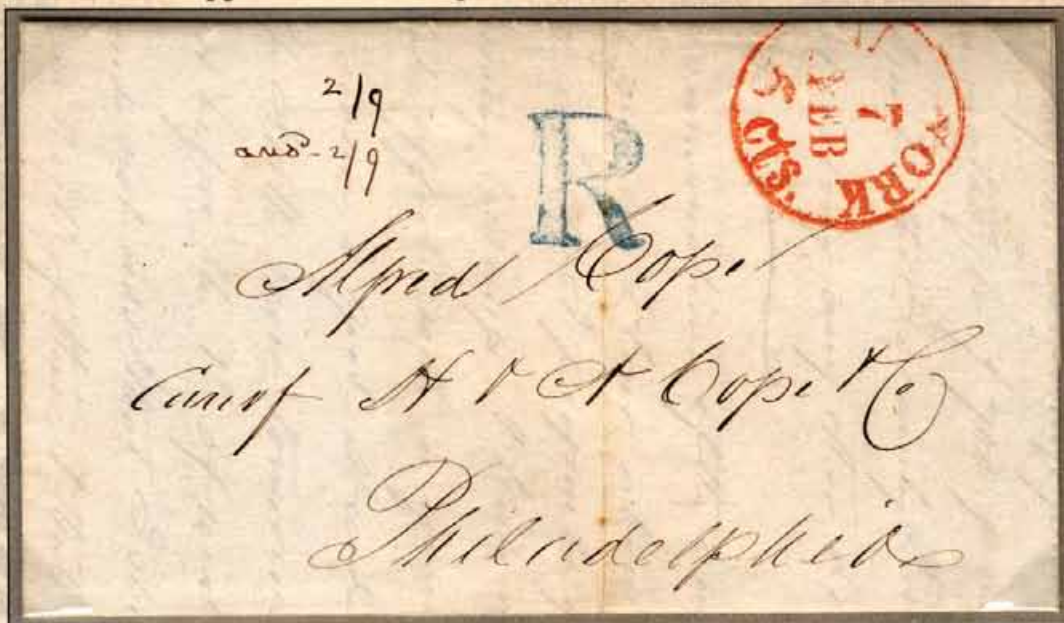 2/9
ansd - 2/9
R
YORK
7
FEB
5 cts.
Alfred Cope
Care of H & A Cope & Co
Philadelphia